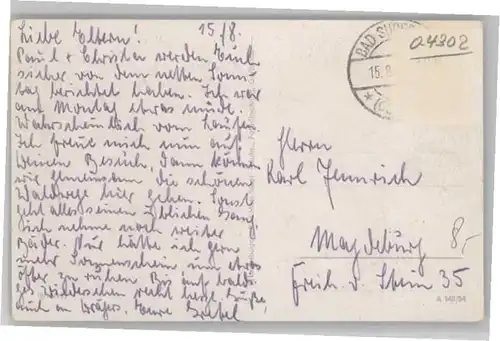 Liebe Eltern! 15./8.
Paul + Christa werden Euch
sicher von dem netten Sonn-
tag berichtet haben. Ich war
am Montag etwas müde.
Wahrscheinlich vom Laufen.
Ich freue mich nun auf
Deinen Besuch, dann können
wir gemeinsam die schönen
Waldwege hier gehen. Sonst
geht alles seinen üblichen Gang.
Ich nehme noch weiter
Bäder. Nur hätte ich gern
mehr Sonnenschein, um etwas
öfter zu ruhen. Bis auf baldi-
ges Wiedersehen recht herzl. Grüße,
auch an Eure
BAD
15.8
04302
Herrn
Karl Jennrich
Magdeburg
Freih. v. Stein 35
8,-
A 148/54